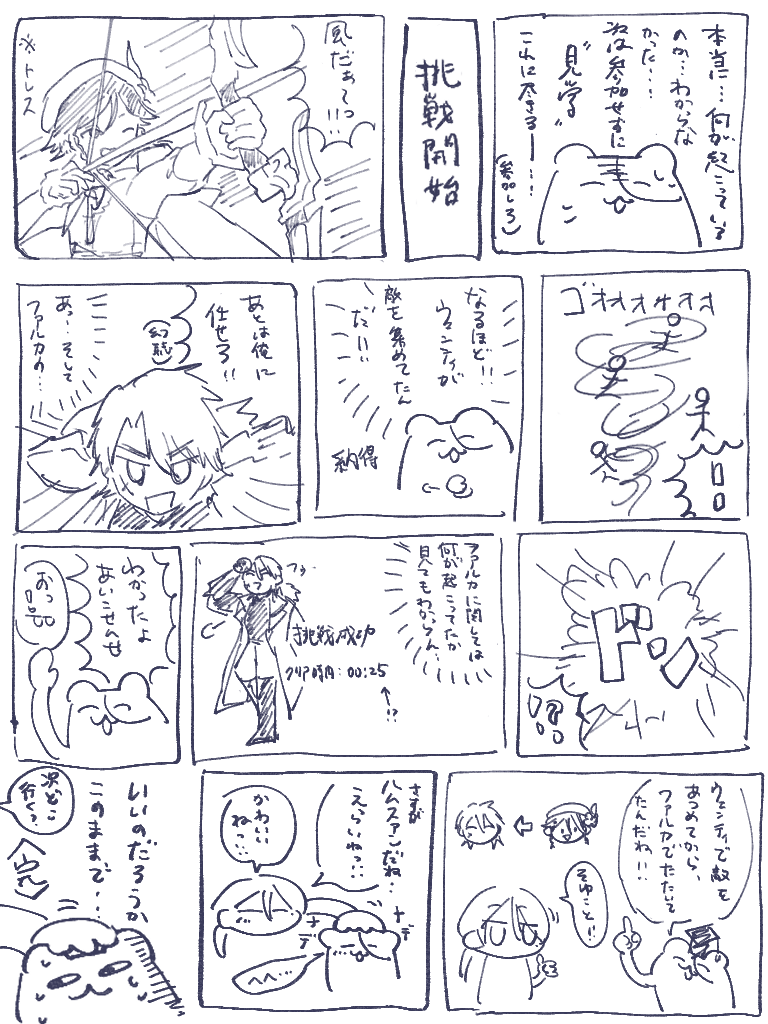 本当に…何が起こっている
のか…わからな
かった……
次は参加せずに
“見学”
これに尽きるー……
(参加しろ)
挑戦開始
風だぁてっ
!!
※トレス
ゴオオオオオオ
なるほど!!
ウェンティが
敵を集めてたん
だ!!
納得
あとは俺に
任せろ!!
幻聴
あっ…そして
ファルカの…
ドン
!?
ファルカに関しては
何が起こってたか
見てもわからん…
挑戦成功
クリア時間:00:25
!?
わかったよ
あいこせんせ
おっ
ウェンティで敵を
あつめてから、
ファルカでたたいて
たんだね!!
そゆこと!!
さすが
ハムスァンだね…
えらいねっ…
かわいい
ねっ…
ナデ
ナデ
へへ…
いいのだろうか
このままで…
次どこ
行く?
〈完〉